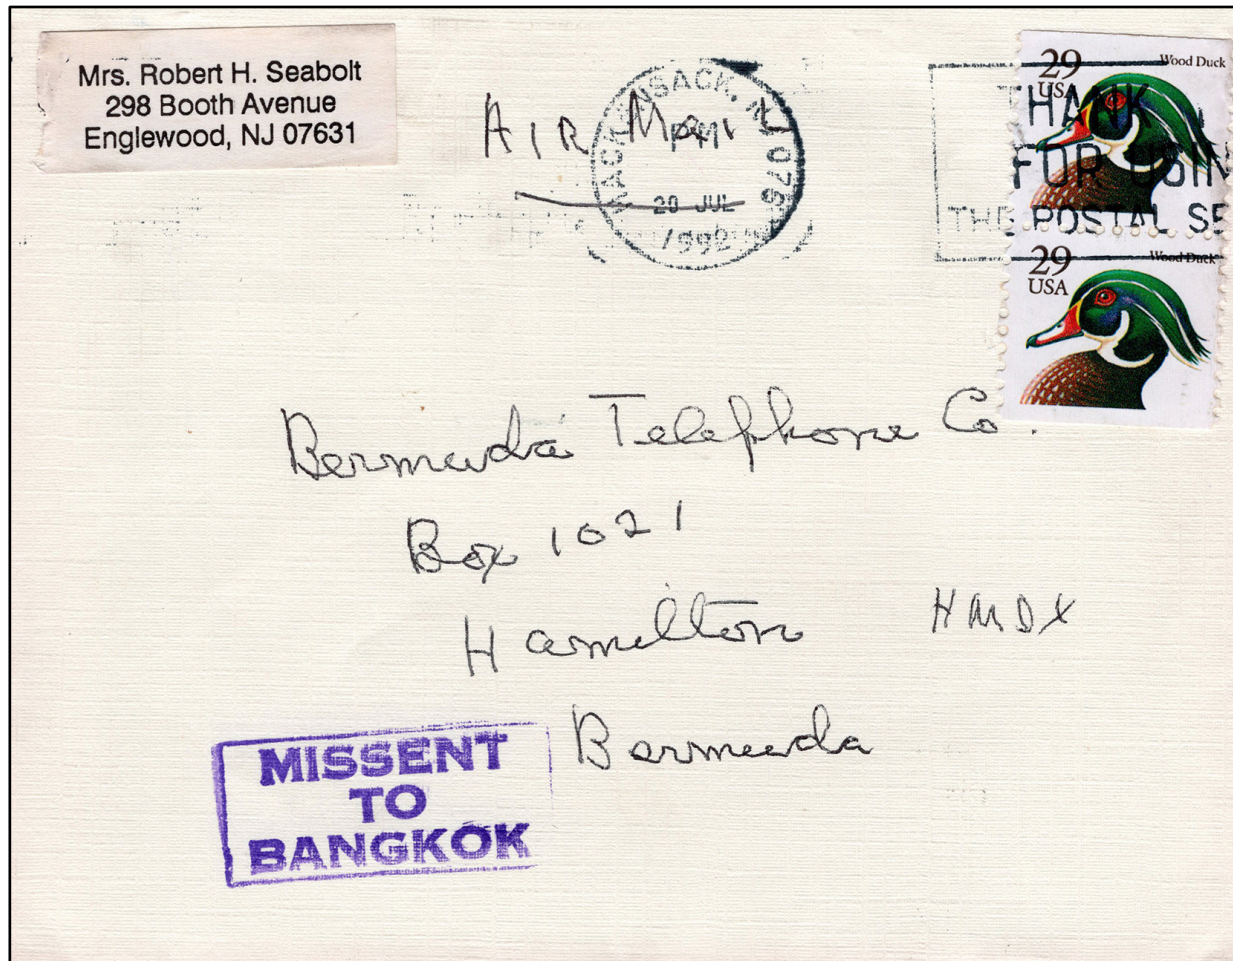 Mrs. Robert H. Seabolt
298 Booth Avenue
Englewood, NJ 07631
AIR Mail
HACKENSACK, NJ 076
PM
20 JUL
1992
29
USA
Wood Duck
THANK
FOR USIN
THE POSTAL SE
29
USA
Wood Duck
Bermuda Telephone Co.
Box 1021
Hamilton HMDX
Bermuda
MISSENT
TO
BANGKOK